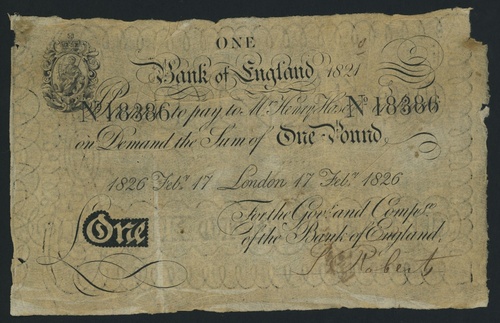 ONE
Bank of England 1821
Nº 18386 to pay to Mr. Henry Hase Nº 18386
on Demand the Sum of One Pound
1826 Feby. 17 London 17 Feby. 1826
For the Govr. and Compa. of
One
of the Bank of England.